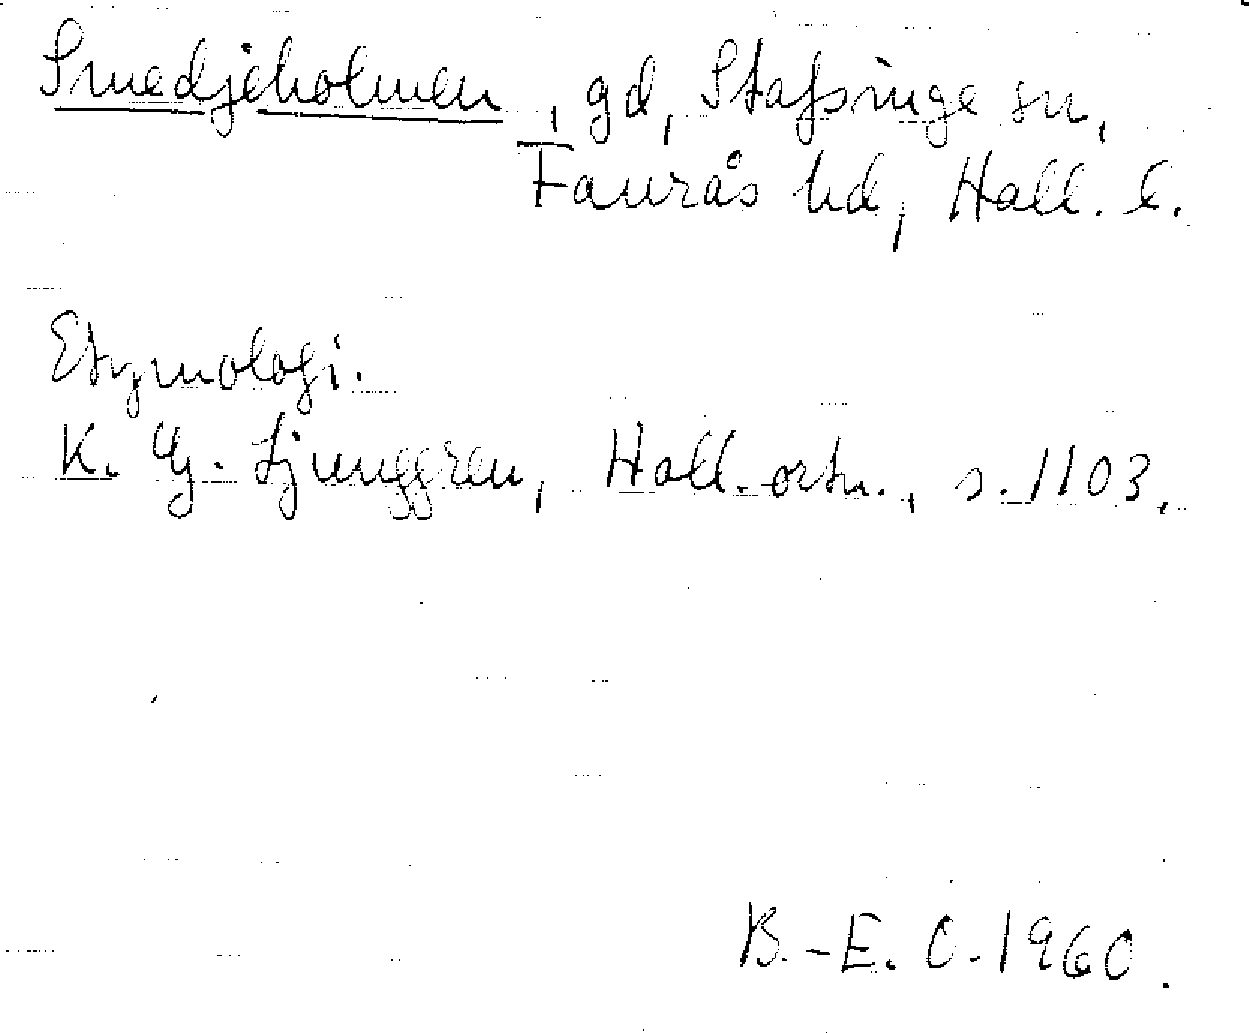 Smedjeholmen, gd, Stafsinge sn,
Faurås hd, Hall. l.
Etymologi.
K. G. Ljunggren, Hall. ortn., s. 1103.
B.-E. O. 1960.